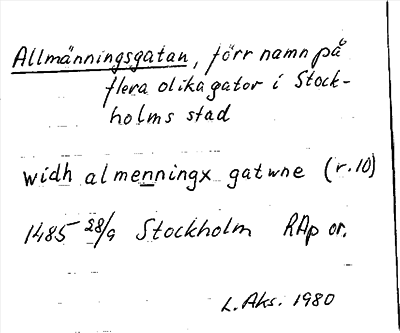 Allmänningsgatan, förr namn på
flera olika gator i Stock-
holms stad
widh almenningx gatwne (r.10)
1485 28/9 Stockholm RAp or.
L. Aks. 1980